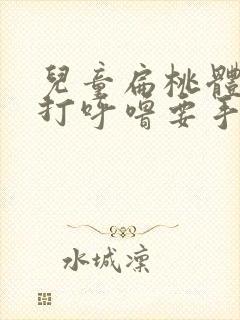 兒童扁桃體
打呼嚕要手
水城凜